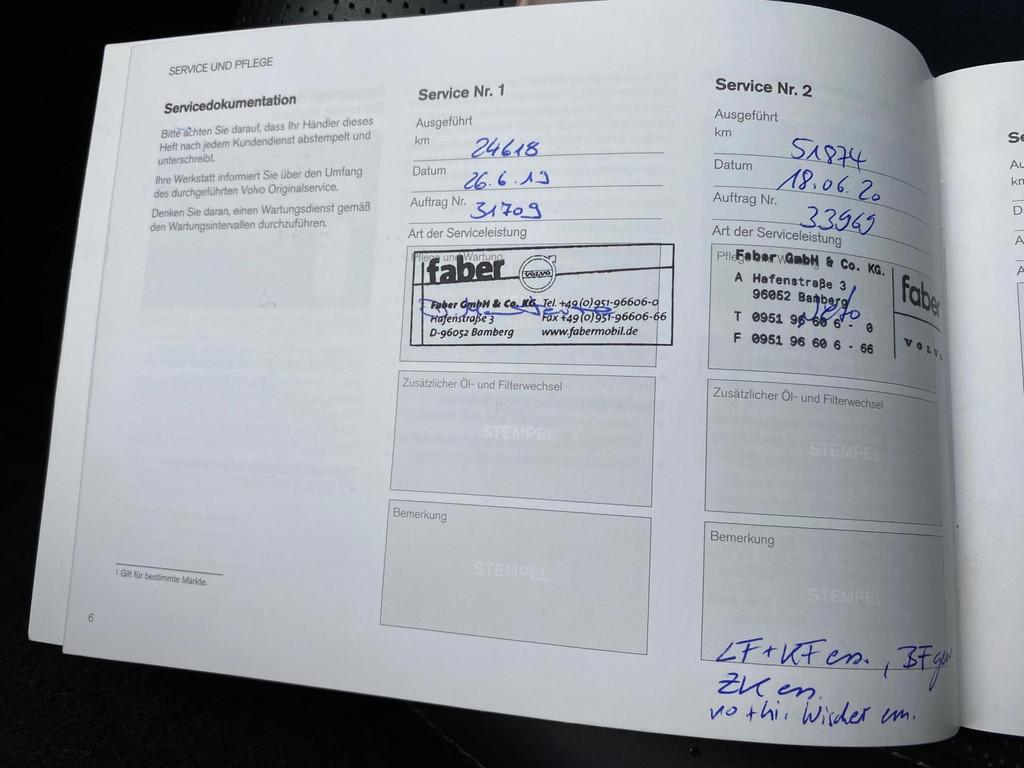 SERVICE UND PFLEGE
Servicedokumentation
Bitte achten Sie darauf, dass Ihr Händler dieses
Heft nach jedem Kundendienst abstempelt und
unterschreibt.
Ihre Werkstatt informiert Sie über den Umfang
des durchgeführten Volvo Originalservice.
Denken Sie daran, einen Wartungsdienst gemäß
den Wartungsintervallen durchzuführen.
1 Gilt für bestimmte Märkte.
6
Service Nr. 1
Ausgeführt
km 24618
Datum 26.6.19
Auftrag Nr. 31709
Art der Serviceleistung
Pflege und Wartung
faber VOLVO
Faber GmbH & Co. KG Tel. +49(0)951-96606-0
Hafenstraße 3 Fax +49(0)951-96606-66
D-96052 Bamberg www.fabermobil.de
Zusätzlicher Öl- und Filterwechsel
STEMPEL
Bemerkung
STEMPEL
Service Nr. 2
Ausgeführt
km 51874
Datum 18.06.20
Auftrag Nr. 33969
Art der Serviceleistung
Faber GmbH & Co. KG.
A Hafenstraße 3
96052 Bamberg
T 0951 96 60 6 - 0
F 0951 96 60 6 - 66
faber
VOLV
Zusätzlicher Öl- und Filterwechsel
STEMPEL
Bemerkung
STEMPEL
LF + KF en. , BF
ZK en.
vo + hi. Wischer en.